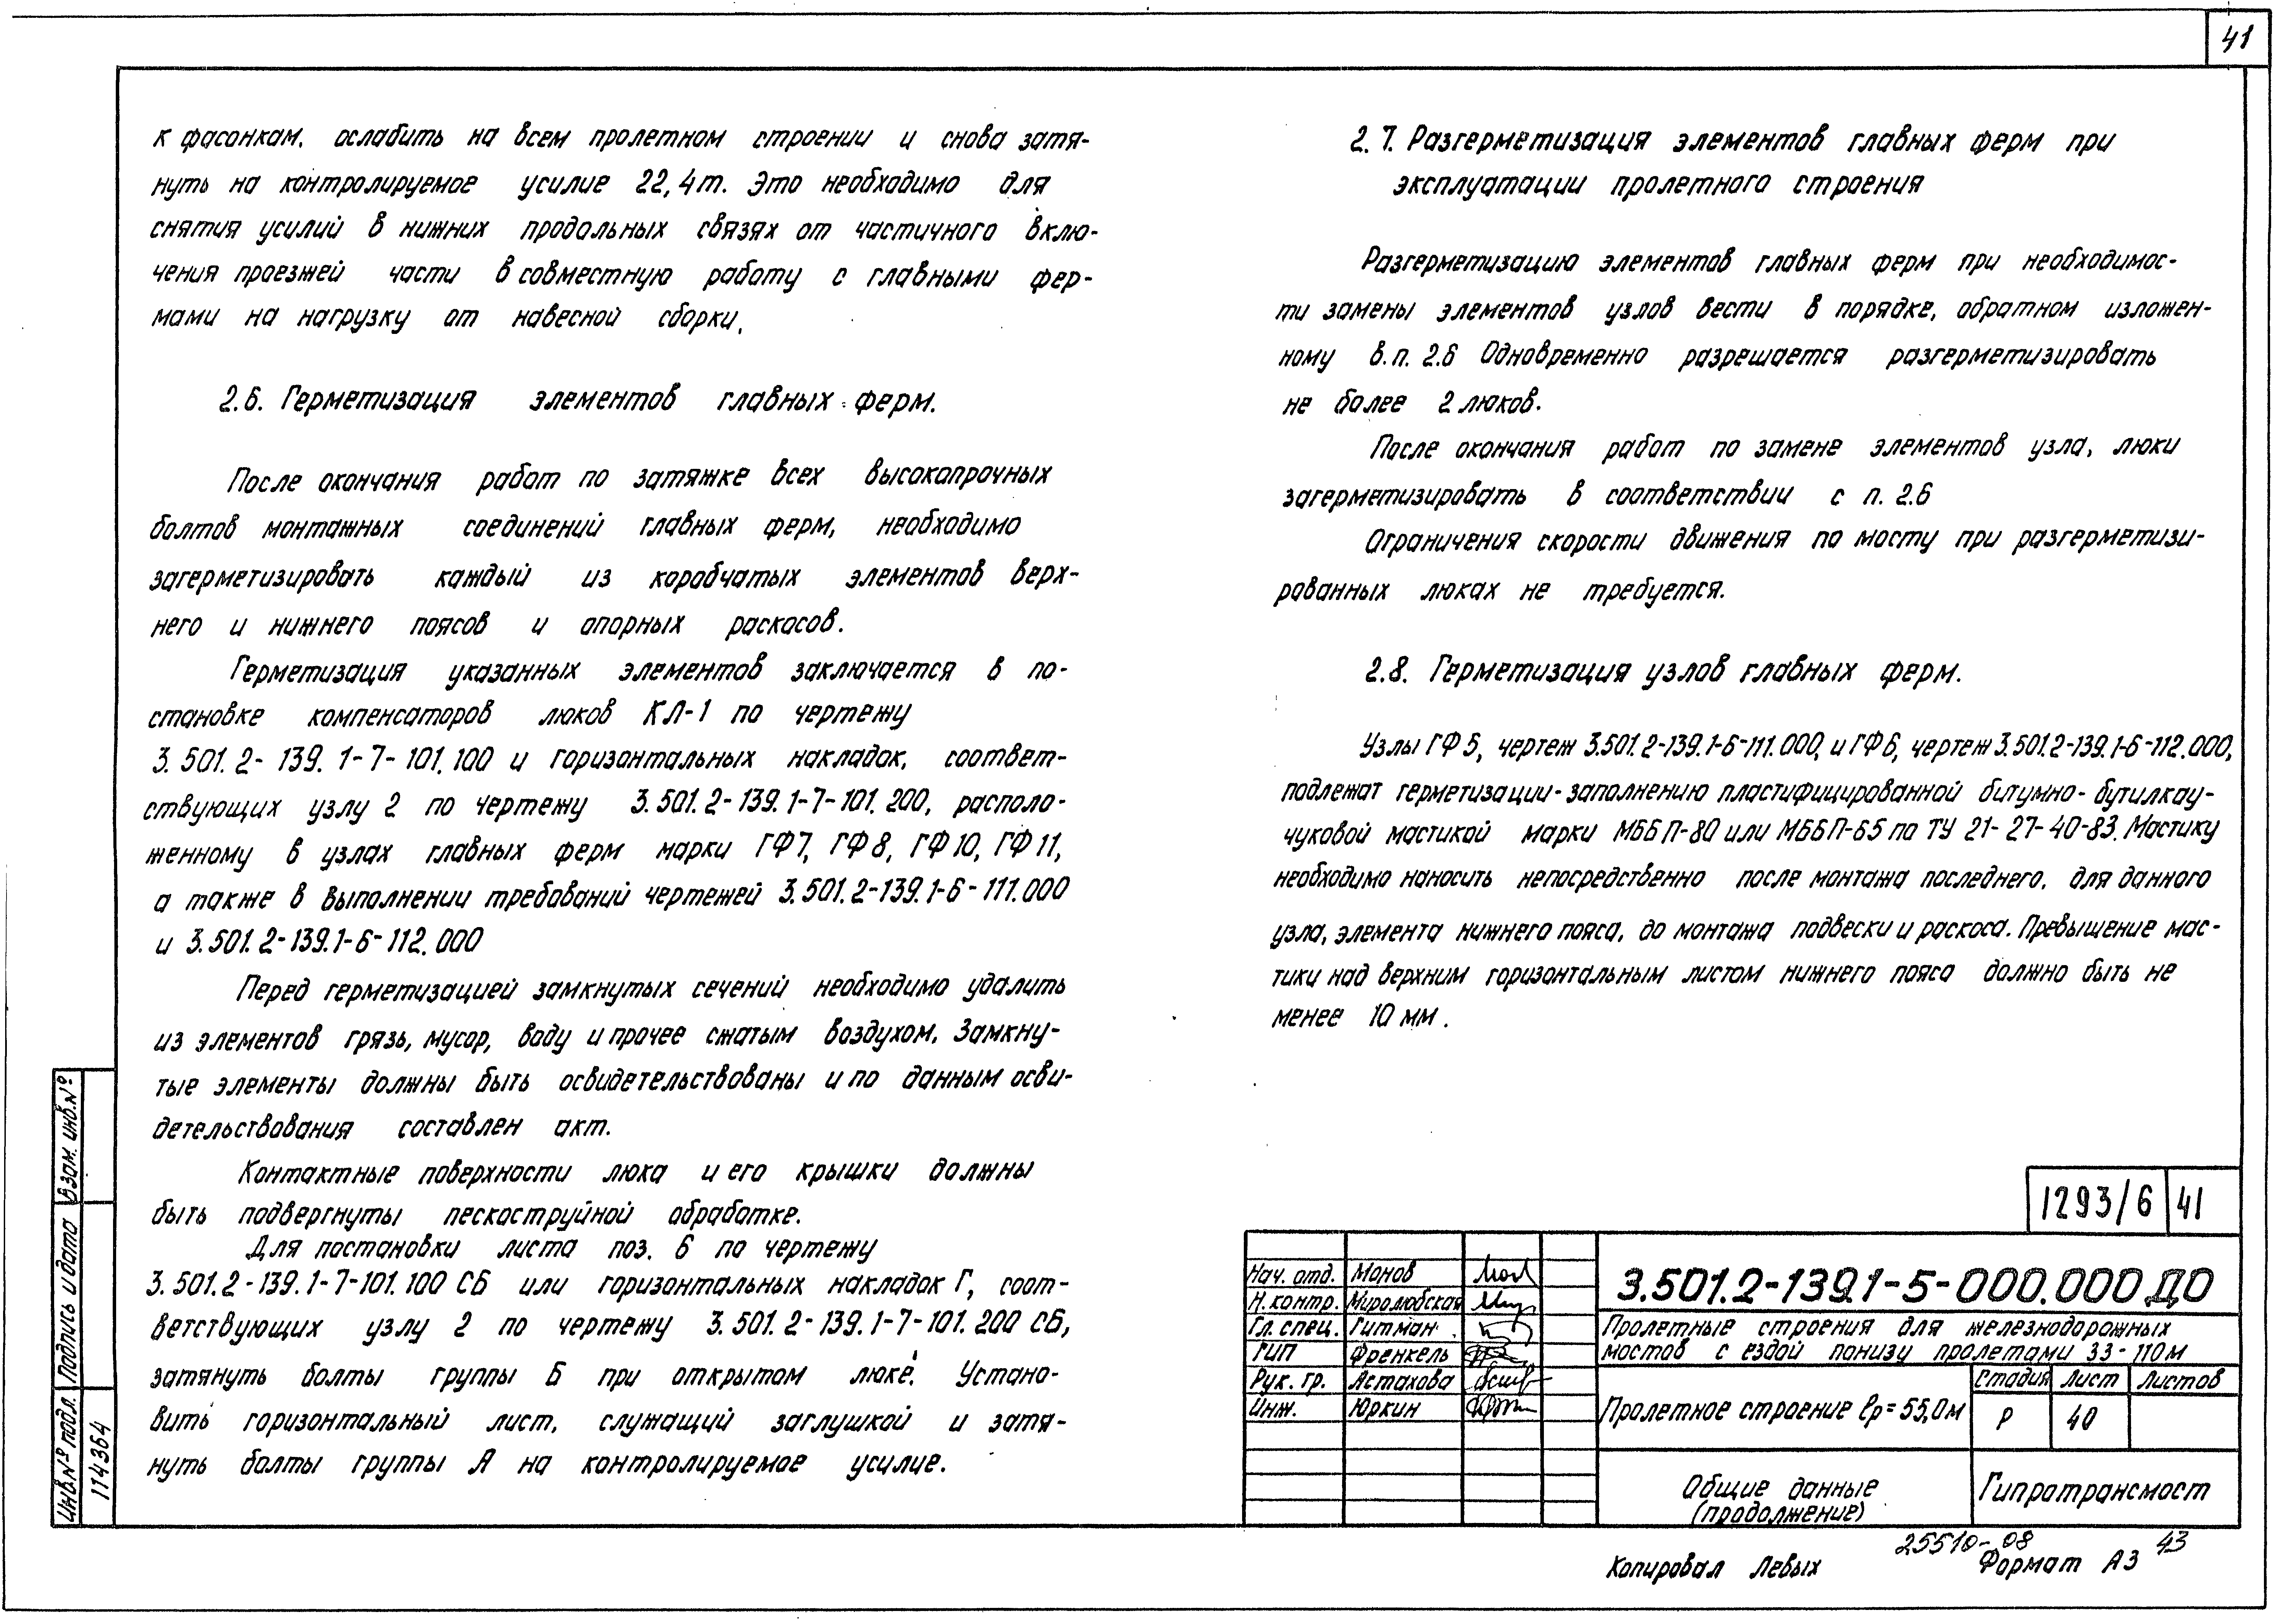 41
к фасонкам. ослабить на всем пролетном строении и снова затя-
нуть на контролируемое усилие 22,4т. Это необходимо для
снятия усилий в нижних продольных связях от частичного вклю-
чения проезжей части в совместную работу с главными фер-
мами на нагрузку от навесной сборки.
2.6. Герметизация элементов главных ферм.
После окончания работ по затяжке всех высокопрочных
болтов монтажных соединений главных ферм, необходимо
загерметизировать каждый из коробчатых элементов верх-
него и нижнего поясов и опорных раскосов.
Герметизация указанных элементов заключается в по-
становке компенсаторов люков КЛ-1 по чертежу
3.501.2-139.1-7-101.100 и горизонтальных накладок, соответ-
ствующих узлу 2 по чертежу 3.501.2-139.1-7-101.200, располо-
женному в узлах главных ферм марки ГФ7, ГФ8, ГФ10, ГФ11,
а также в выполнении требований чертежей 3.501.2-139.1-6-111.000
и 3.501.2-139.1-6-112.000
Перед герметизацией замкнутых сечений необходимо удалить
из элементов грязь, мусор, воду и прочее сжатым воздухом. Замкну-
тые элементы должны быть освидетельствованы и по данным осви-
детельствования составлен акт.
Контактные поверхности люка и его крышки должны
быть подвергнуты пескоструйной обработке.
Для постановки листа поз. 6 по чертежу
3.501.2-139.1-7-101.100 СБ или горизонтальных накладок Г, соот-
ветствующих узлу 2 по чертежу 3.501.2-139.1-7-101.200 СБ,
затянуть болты группы Б при открытом люке. Устано-
вить горизонтальный лист, служащий заглушкой и затя-
нуть болты группы А на контролируемое усилие.
2.7. Разгерметизация элементов главных ферм при
эксплуатации пролетного строения
Разгерметизацию элементов главных ферм при необходимос-
ти замены элементов узлов вести в порядке, обратном изложен-
ному в.п. 2.6 Одновременно разрешается разгерметизировать
не более 2 люков.
После окончания работ по замене элементов узла, люки
загерметизировать в соответствии с п. 2.6
Ограничения скорости движения по мосту при разгерметизи-
рованных люках не требуется.
2.8. Герметизация узлов главных ферм.
Узлы ГФ5, чертеж 3.501.2-139.1-6-111.000, и ГФ6, чертеж 3.501.2-139.1-6-112.000,
подлежат герметизации-заполнению пластифицированной битумно-бутилкау-
чуковой мастикой марки МББП-80 или МББП-65 по ТУ 21-27-40-83. Мастику
необходимо наносить непосредственно после монтажа последнего. для данного
узла, элемента нижнего пояса, до монтажа подвески и раскоса. Превышение мас-
тики над верхним горизонтальным листом нижнего пояса должно быть не
менее 10 мм.
1293/6 41
Нач. отд. Монов
Н. контр. Миролюбская
Гл. спец. Гитман
ГИП Френкель
Рук. гр. Астахова
Инж. Юркин
3.501.2-139.1-5-000.000 ДО
Пролетные строения для железнодорожных
мостов с ездой понизу пролетами 33-110м
Пролетное строение lр=55,0м
Стадия Лист Листов
Р 40
Общие данные
(продолжение)
Гипротрансмост
Инв.№ подл. Подпись и дата Взам. инв.№
114364
25510-08 43
Копировал Левых Формат А3